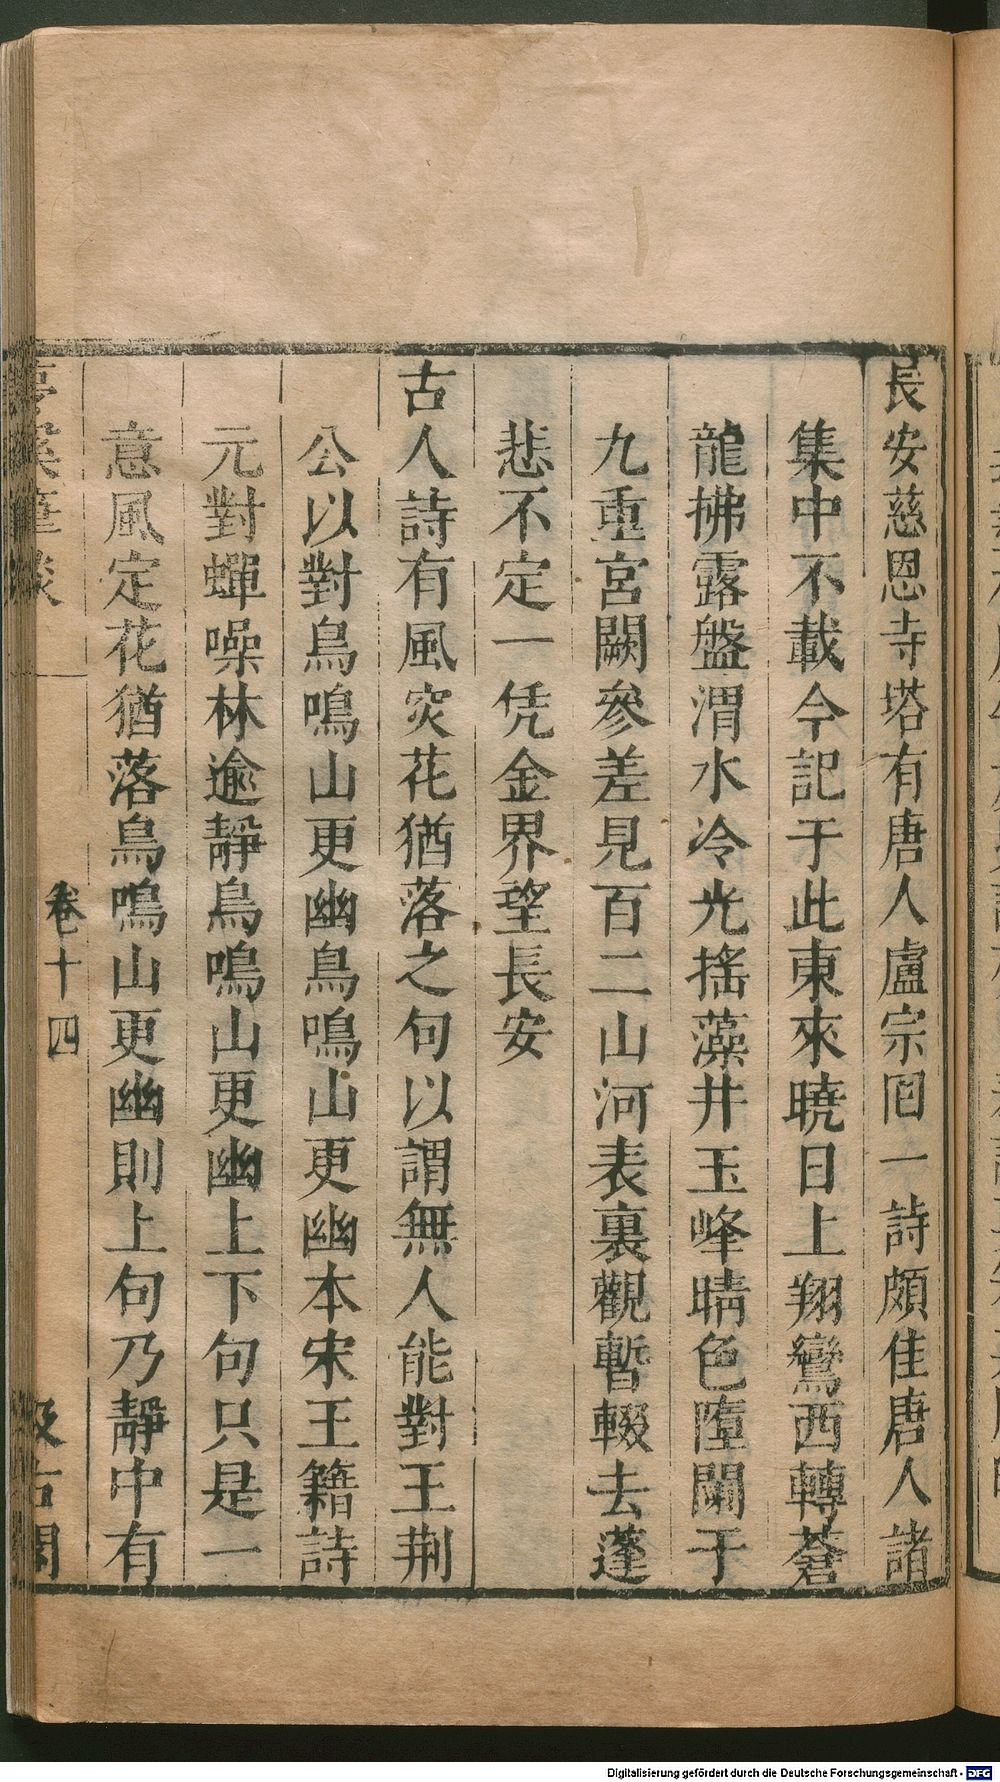 長安慈恩寺塔有唐人盧宗囘一詩頗佳唐人諸
集中不載今記于此東來曉日上翔鸞西轉蒼
龍拂露盤渭水冷光搖藻井玉峰晴色墮闌干
九重宮闕參差見百二山河表裏觀暫輟去蓬
悲不定一凭金界望長安
古人詩有風㝎花猶落之句以謂無人能對王荆
公以對鳥鳴山更幽鳥鳴山更幽本宋王籍詩
元對蟬噪林逾靜鳥鳴山更幽上下句只是一
意風定花猶落鳥鳴山更幽則上句乃靜中有
夢溪筆談 卷十四 汲古閣
Digitalisierung gefördert durch die Deutsche Forschungsgemeinschaft - DFG